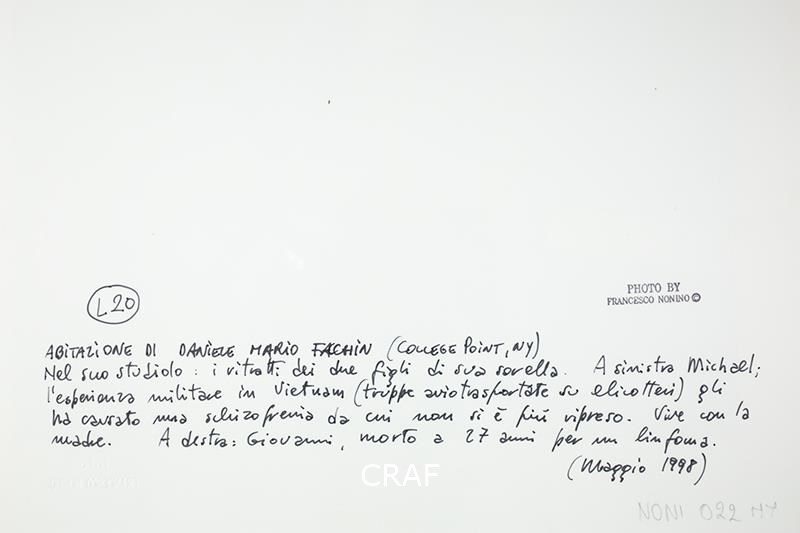 L20
PHOTO BY
FRANCESCO NONINO ©
ABITAZIONE DI DANIELE MARIO FACHIN (COLLEGE POINT, NY)
Nel suo studiolo: i ritratti dei due figli di sua sorella. A sinistra Michael;
l'esperienza militare in Vietnam (truppe aviotrasportate su elicotteri) gli
ha causato una schizofrenia da cui non si è più ripreso. Vive con la
madre. A destra: Giovanni, morto a 27 anni per un linfoma.
(Maggio 1998)
CRAF
NONI 022 MY